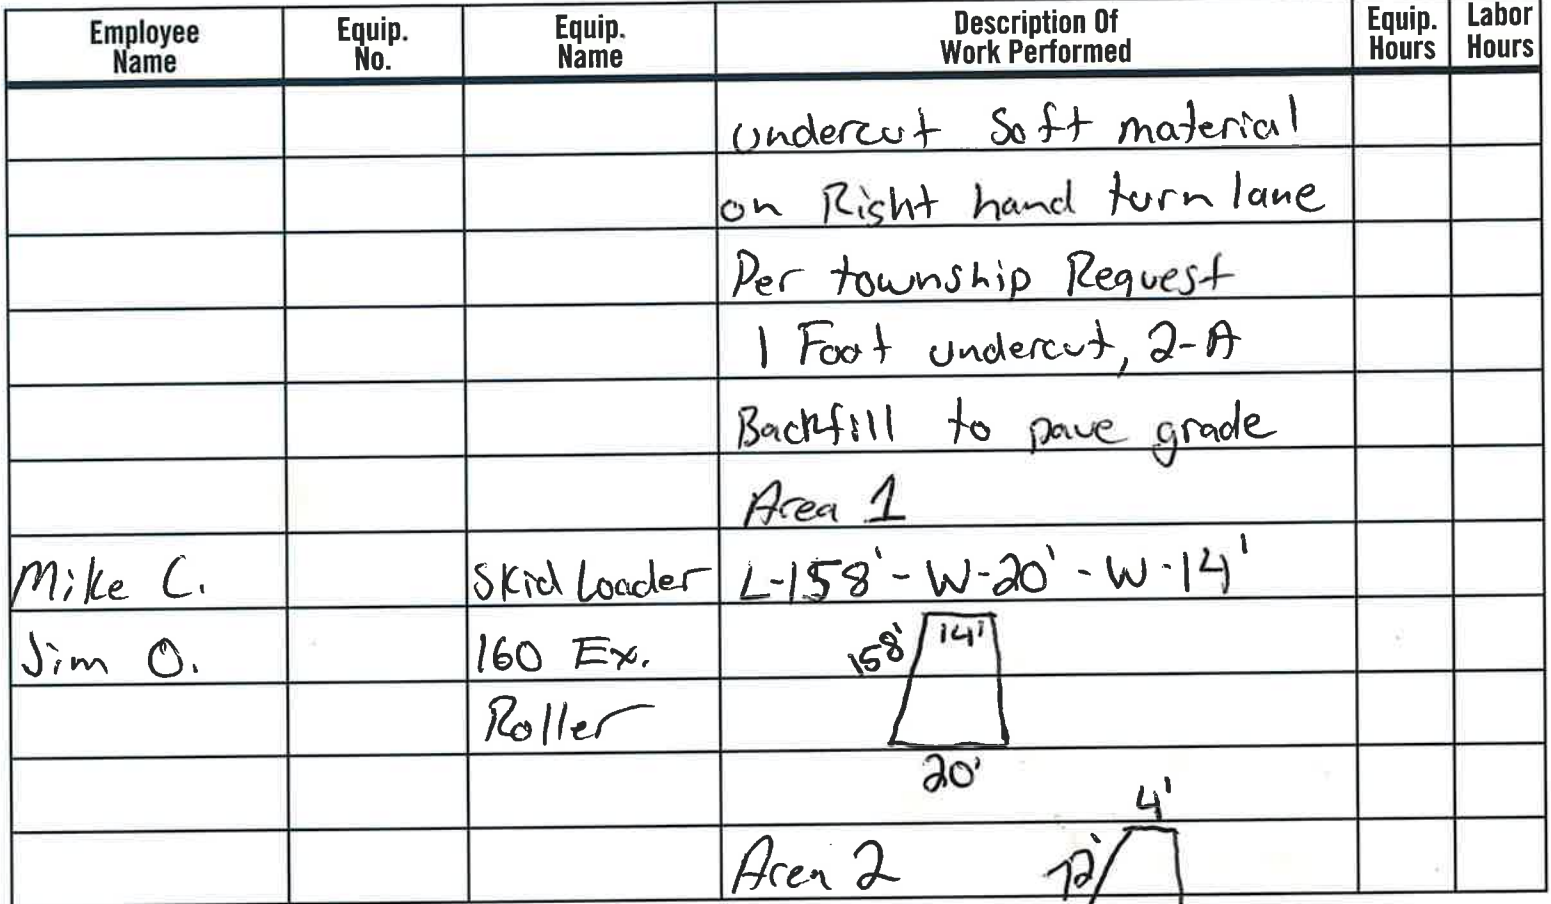 Employee Name Equip. No. Equip. Name Description Of Work Performed Equip. Hours Labor Hours
undercut Soft material
on Right hand turn lane
Per township Request
1 Foot undercut, 2-A
Backfill to pave grade
Area 1
Mike C. Skid Loader L-158' - W-20' - W-14'
Jim O. 160 Ex. 158' 14'
Roller
20'
4'
Area 2 72'